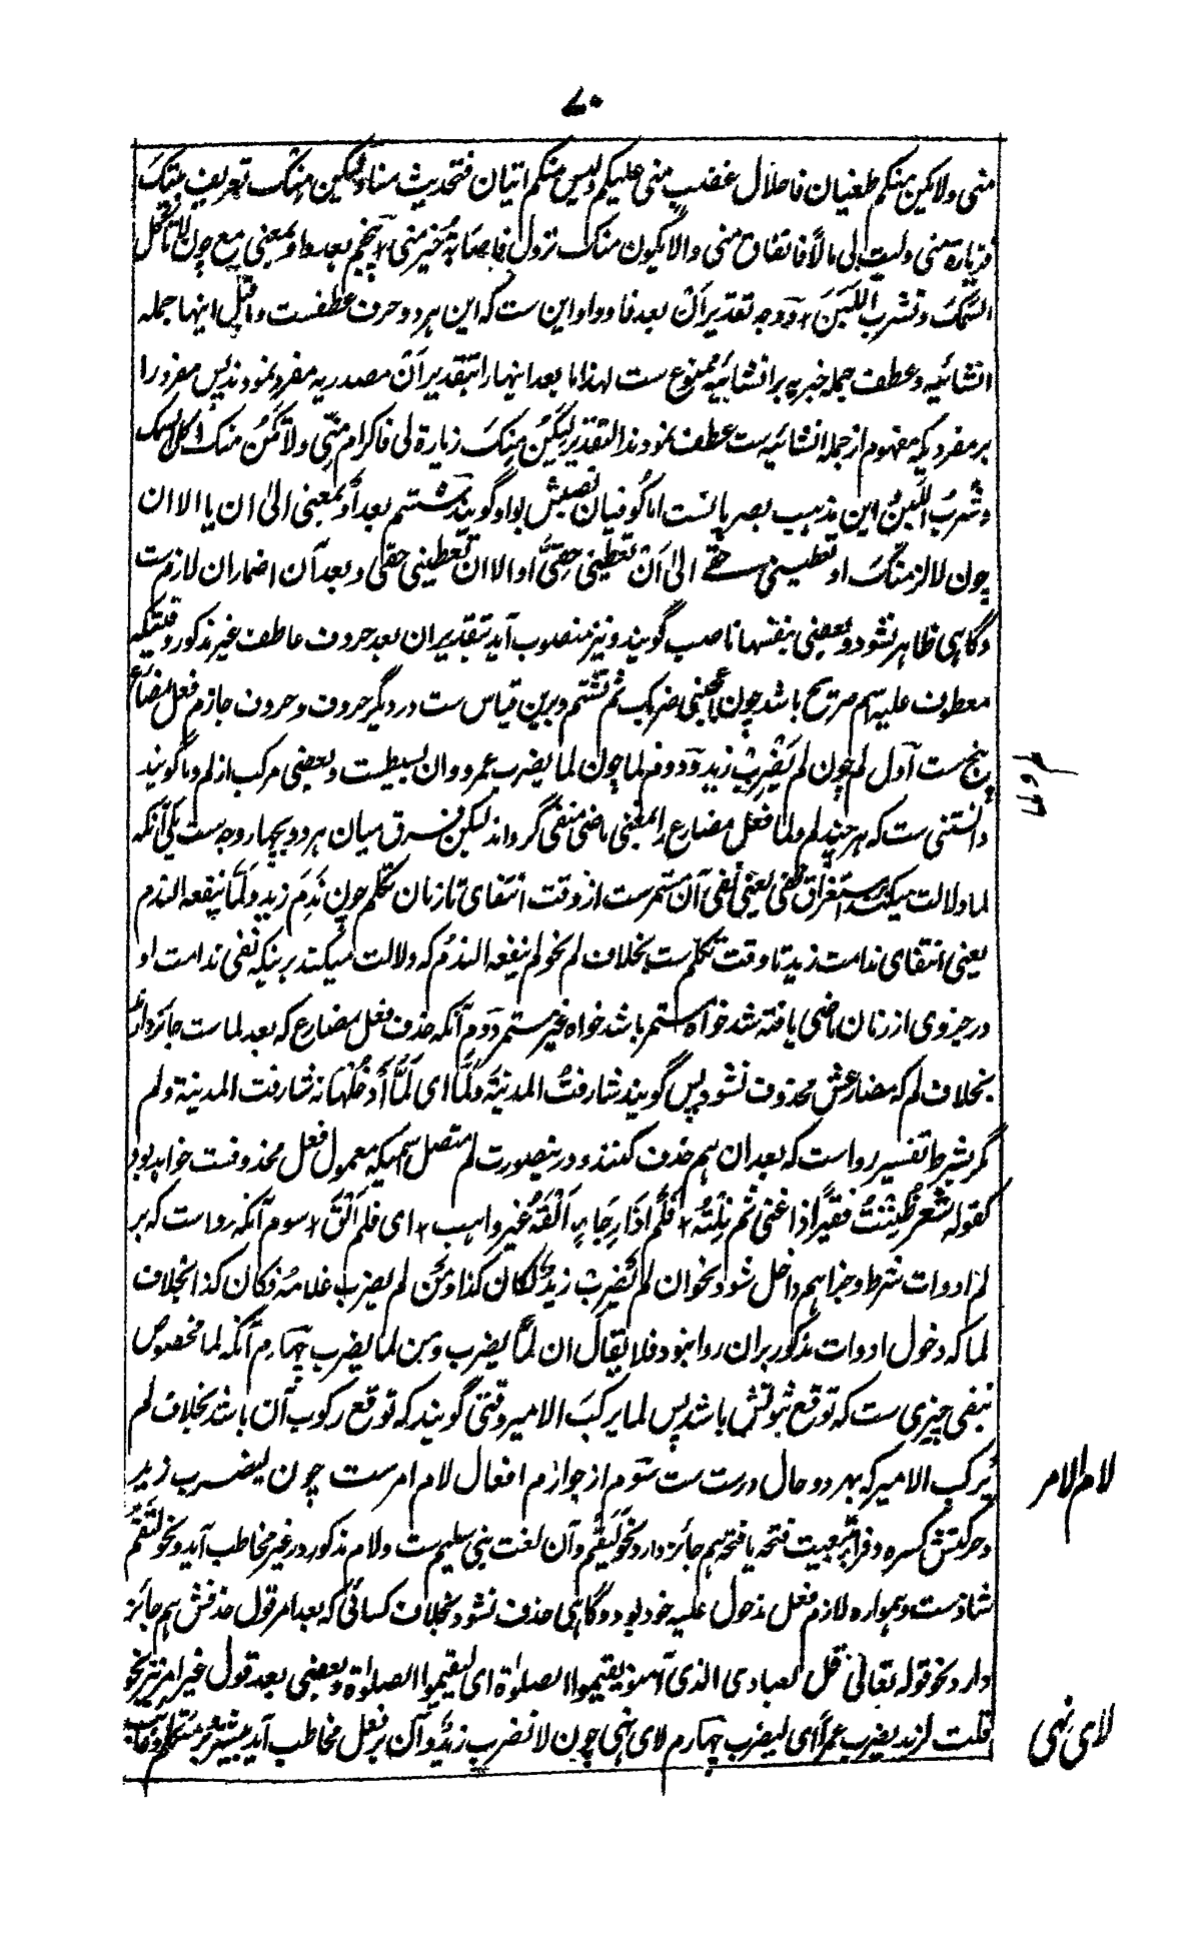 ۷۰
منی ولایکن منکم طغیان فاحلال غضب منی علیکم ولیس منکم اتیان فتحدیث منا ولیکن منک تعریف بیتک
فزیارة منی ولیت لی مالا فانفاق منی والا یکون منک نزول فاصابة خیر منی ۱۲ پنجم بعد واو بمعنی مع چون لا تاکل
السمک وتشرب اللبن ۱۲ ووجه تقدیر اَن بعد فا وواو این ست که این هر دو حرف عطفست وقبل اینها جمله
انشائیه وعطف جمله خبریه بر انشائیه ممنوع ست لهذا ما بعد اینها را بتقدیر اَن مصدریه مفرد نمودند پس مفرد را
بر مفردیکه مفهوم از جمله انشائیه ست عطف نمودند التقدیر لیکن منک زیارة لی فاکرام منی ولا یکن منک اکل السمک
وشرب اللبن این مذهب بصریانست اما کوفیان نصبش بواو گویند ششم بعد اَو بمعنی الیٰ ان یا الا ان
چون لالزمنک او تعطینی حقی الیٰ اَن تعطینی حقی او الا ان تعطینی حقی وبعد آن اضمار ان لازم ست
وگاهی ظاهر نشود وبعضی بنفسها ناصب گویند ونیز منصوب آید بتقدیر ان بعد حروف عاطف غیر مذکور وقتیکه
معطوف علیه اسم صریح باشد چون اعجبنی ضربک ثم تشتم وبرین قیاس ست در دیگر حروف وحروف جازم فعل مضارع
پنج ست اول لم چون لم یضرب زید ودوم لما چون لما یضرب عمرو وان بسیطست وبعضی مرکب از لم وما گویند
دانستنی ست که هر چند لم ولما فعل مضارع را بمعنی ماضی منفی گرداند لیکن فرق میان هر دو بچهار وجه ست یکی آنکه
لما دلالت میکند بر استغراق نفی یعنی نفی آن مستمرست از وقت انتفای تا زمان تکلم چون ندم زید ولما ینفعه الندم
یعنی انتفای ندامت زید تا وقت تکلم ست بخلاف لم نحو لم ینفعه الندم که دلالت میکند برینکه نفی ندامت او
در جزوی از زمان ماضی یافته شد خواه مستمر باشد خواه غیر مستمر دوم آنکه حذف فعل مضارع که بعد لما ست جائز دارند
بخلاف لم که مضارعش محذوف نشود پس گویند شارفتُ المدینة ولما ای لما أدخلها نه شارفت المدینة ولم
مگر بشرط تفسیر رواست که بعد ان هم حذف کنند ودرینصورت لم متصل اسمیکه معمول فعل محذوفست خواهد بود
کقوله شعر ظننت فقیراً ذا غنی ثم نلته ۱۲ فلم ذا رجاء القه غیر واهب ۱۲ ای فلم الق ۱۲ سوم آنکه رواست که بر
لم ادوات شرط وجزا هم داخل شود نحو ان لم یضرب زید لکان کذا ومن لم یضرب غلامه فکان کذا بخلاف
لما که دخول ادوات مذکور بران روا نبود فلا یقال ان لما یضرب ومن لما یضرب چهارم آنکه لما مخصوص
بنفی چیزی ست که توقع ثبوتش باشد پس لما یرکب الامیر وقتی گویند که توقع رکوب آن باشد بخلاف لم
یرکب الامیر که بهر دو حال درست ست سوم از جوازم افعال لام امرست چون لیضرب زید
وحرکتش کسره وفرا بتبعیت فتحه یا فتحه هم جائز دارد نحو لیقم وآن لغت بنی سلیم ست ولام مذکور در غیر مخاطب آید ونحو لتقم
شاذست وهمواره لازم فعل مدخول علیه خود بود وگاهی حذف نشود بخلاف کسائی که بعد امر قول حذفش هم جائز
دارد نحو قوله تعالیٰ قل لعبادی الذی آمنو یقیموا الصلوٰة ای لیقیموا الصلوٰة وبعضی بعد قول غیر امر نیز نحو
قلت لزید یضرب عمراً ای لیضرب چهارم لای نهی چون لا تضرب زیداً وآن بر فعل مخاطب آید بیشتر وبر متکلم وغائب
لام الامر
لای نهی